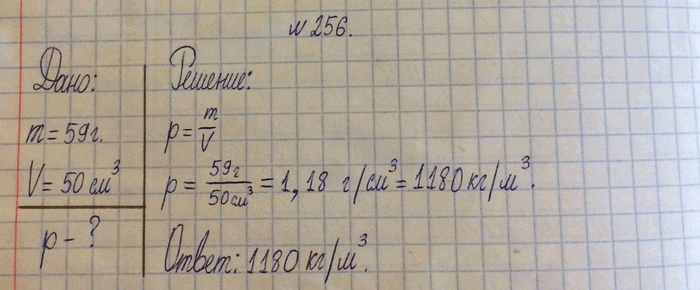 № 256.
Дано:
m = 59 г.
V = 50 см³
p - ?
Решение:
p = m/V
p = 59г/50см³ = 1,18 г/см³ = 1180 кг/м³.
Ответ: 1180 кг/м³.